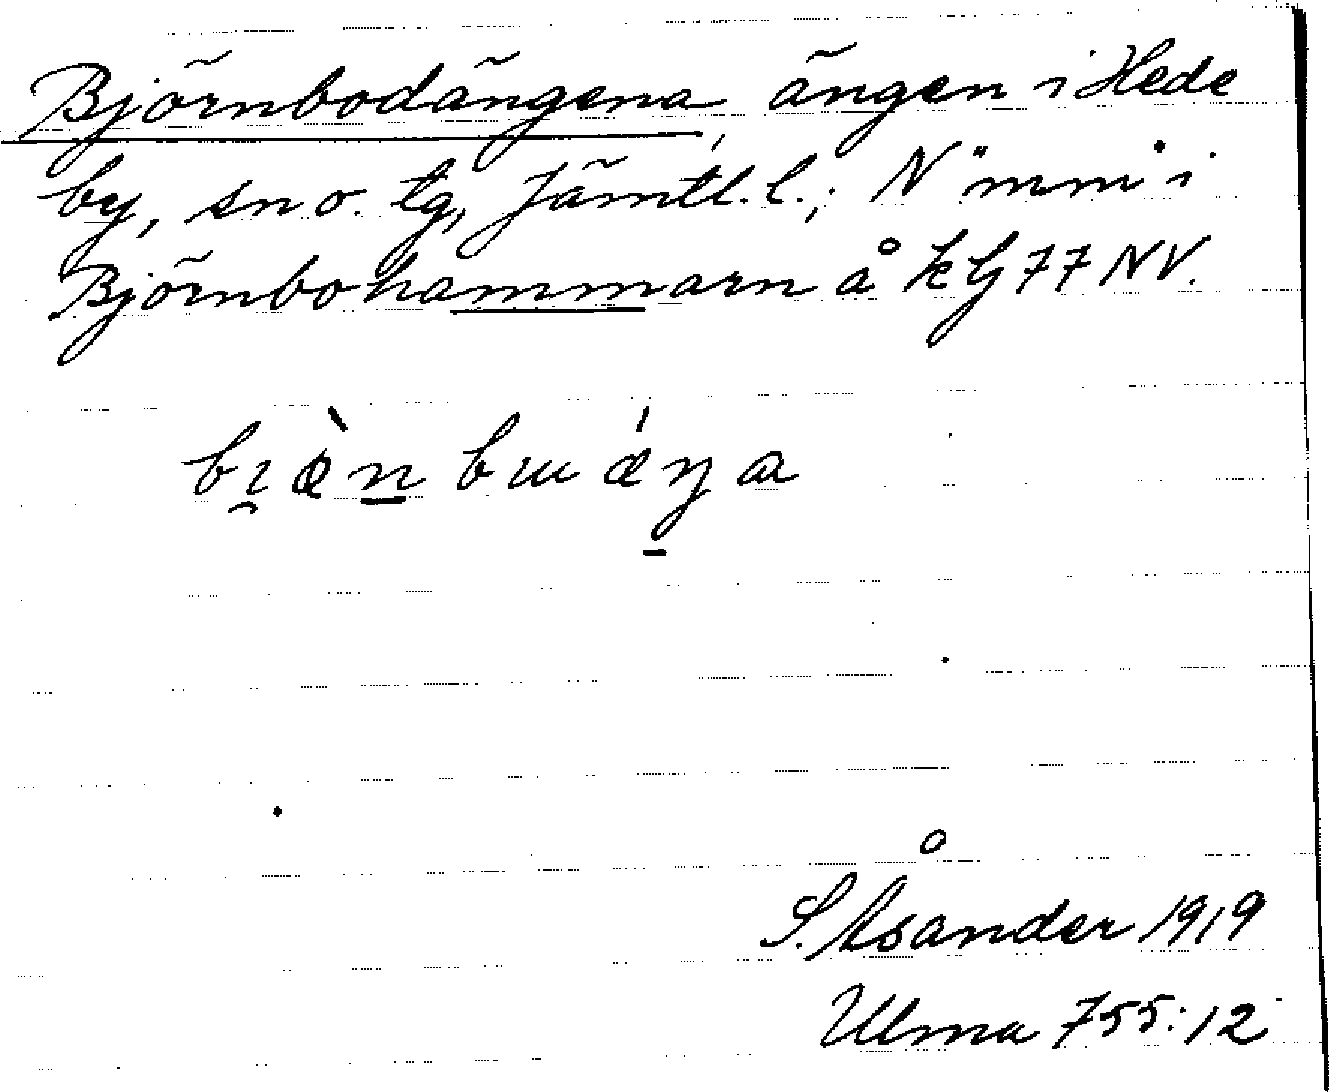 Björnbodängena, ängen i Hede
by, sn o. tg, Jämtl. l.; N "mm" i
Björnbohammarn å kG 77 NV.
bı̯œ̀n bɯǽŋa
S. Åsander 1919
Ulma 755:12